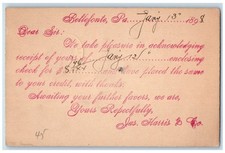 Bellefonte, Pa. Jany 15" 1898
Dear Sir:
We take pleasure in acknowledging
receipt of yours Jany 12" enclosing
check for $ have placed the same
to your credit, with thanks.
Awaiting your further favors, we are,
Yours Respectfully,
Jas. Harris & Co.